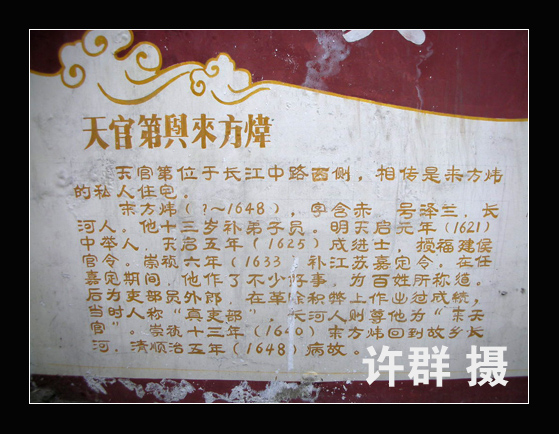 天官第與來方煒
天官第位于长江中路西侧，相传是来方炜
的私人住宅。
来方炜（？～1648），字含赤，号泽兰，长
河人。他十三岁补弟子员。明天启元年（1621）
中举人，天启五年（1625）成进士，授福建侯
官令。崇祯六年（1633 补江苏嘉定令。在任
嘉定期间，他作了不少好事，为百姓所称道。
后为吏部员外郎，在革除积弊上作出过成绩，
当时人称“真吏部”，长河人则尊他为“来天
官”。崇祯十三年（1640）来方炜回到故乡长
河，清顺治五年（1648）病故。
许群 摄